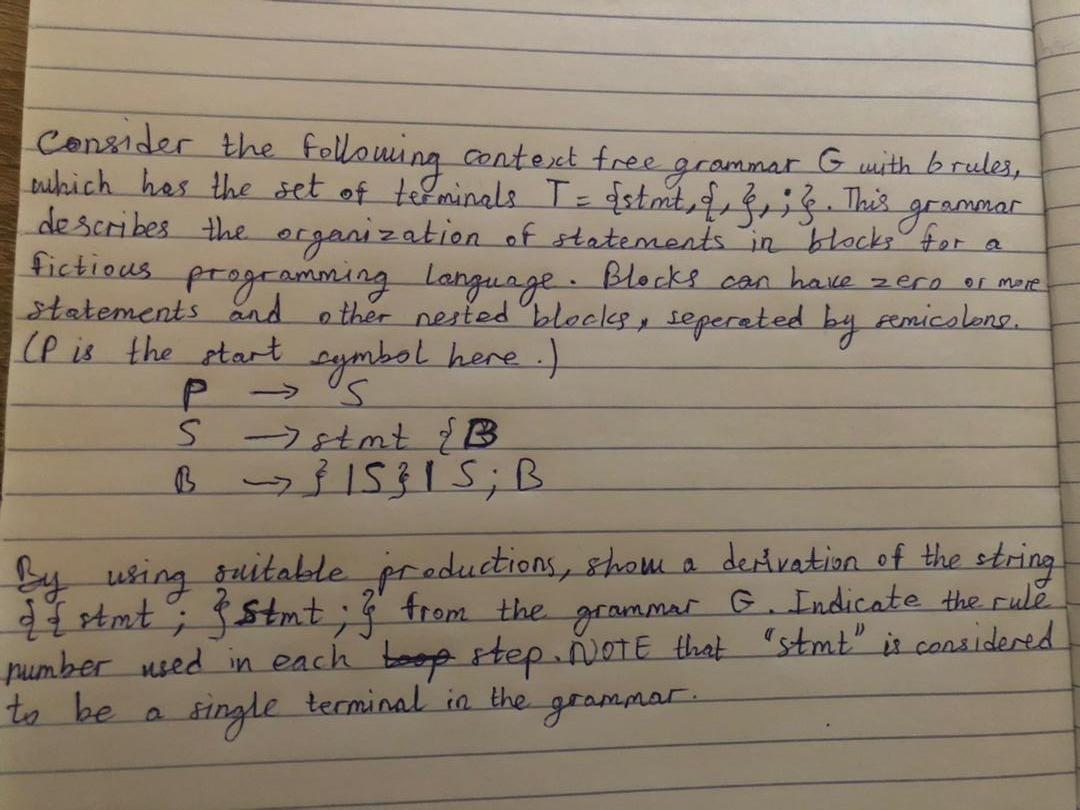 Consider the following context free grammar G with 6 rules,
which has the set of terminals T = {stmt, {, }, ; }. This grammar
describes the organization of statements in blocks for a
fictious programming language. Blocks can have zero or more
statements and other nested blocks, seperated by semicolons.
(P is the start symbol here.)
P → S
S → stmt {B
B → } | S} | S; B
By using suitable productions, show a derivation of the string
{{ stmt ; } stmt ; } from the grammar G. Indicate the rule
number used in each step. NOTE that "stmt" is considered
to be a single terminal in the grammar.